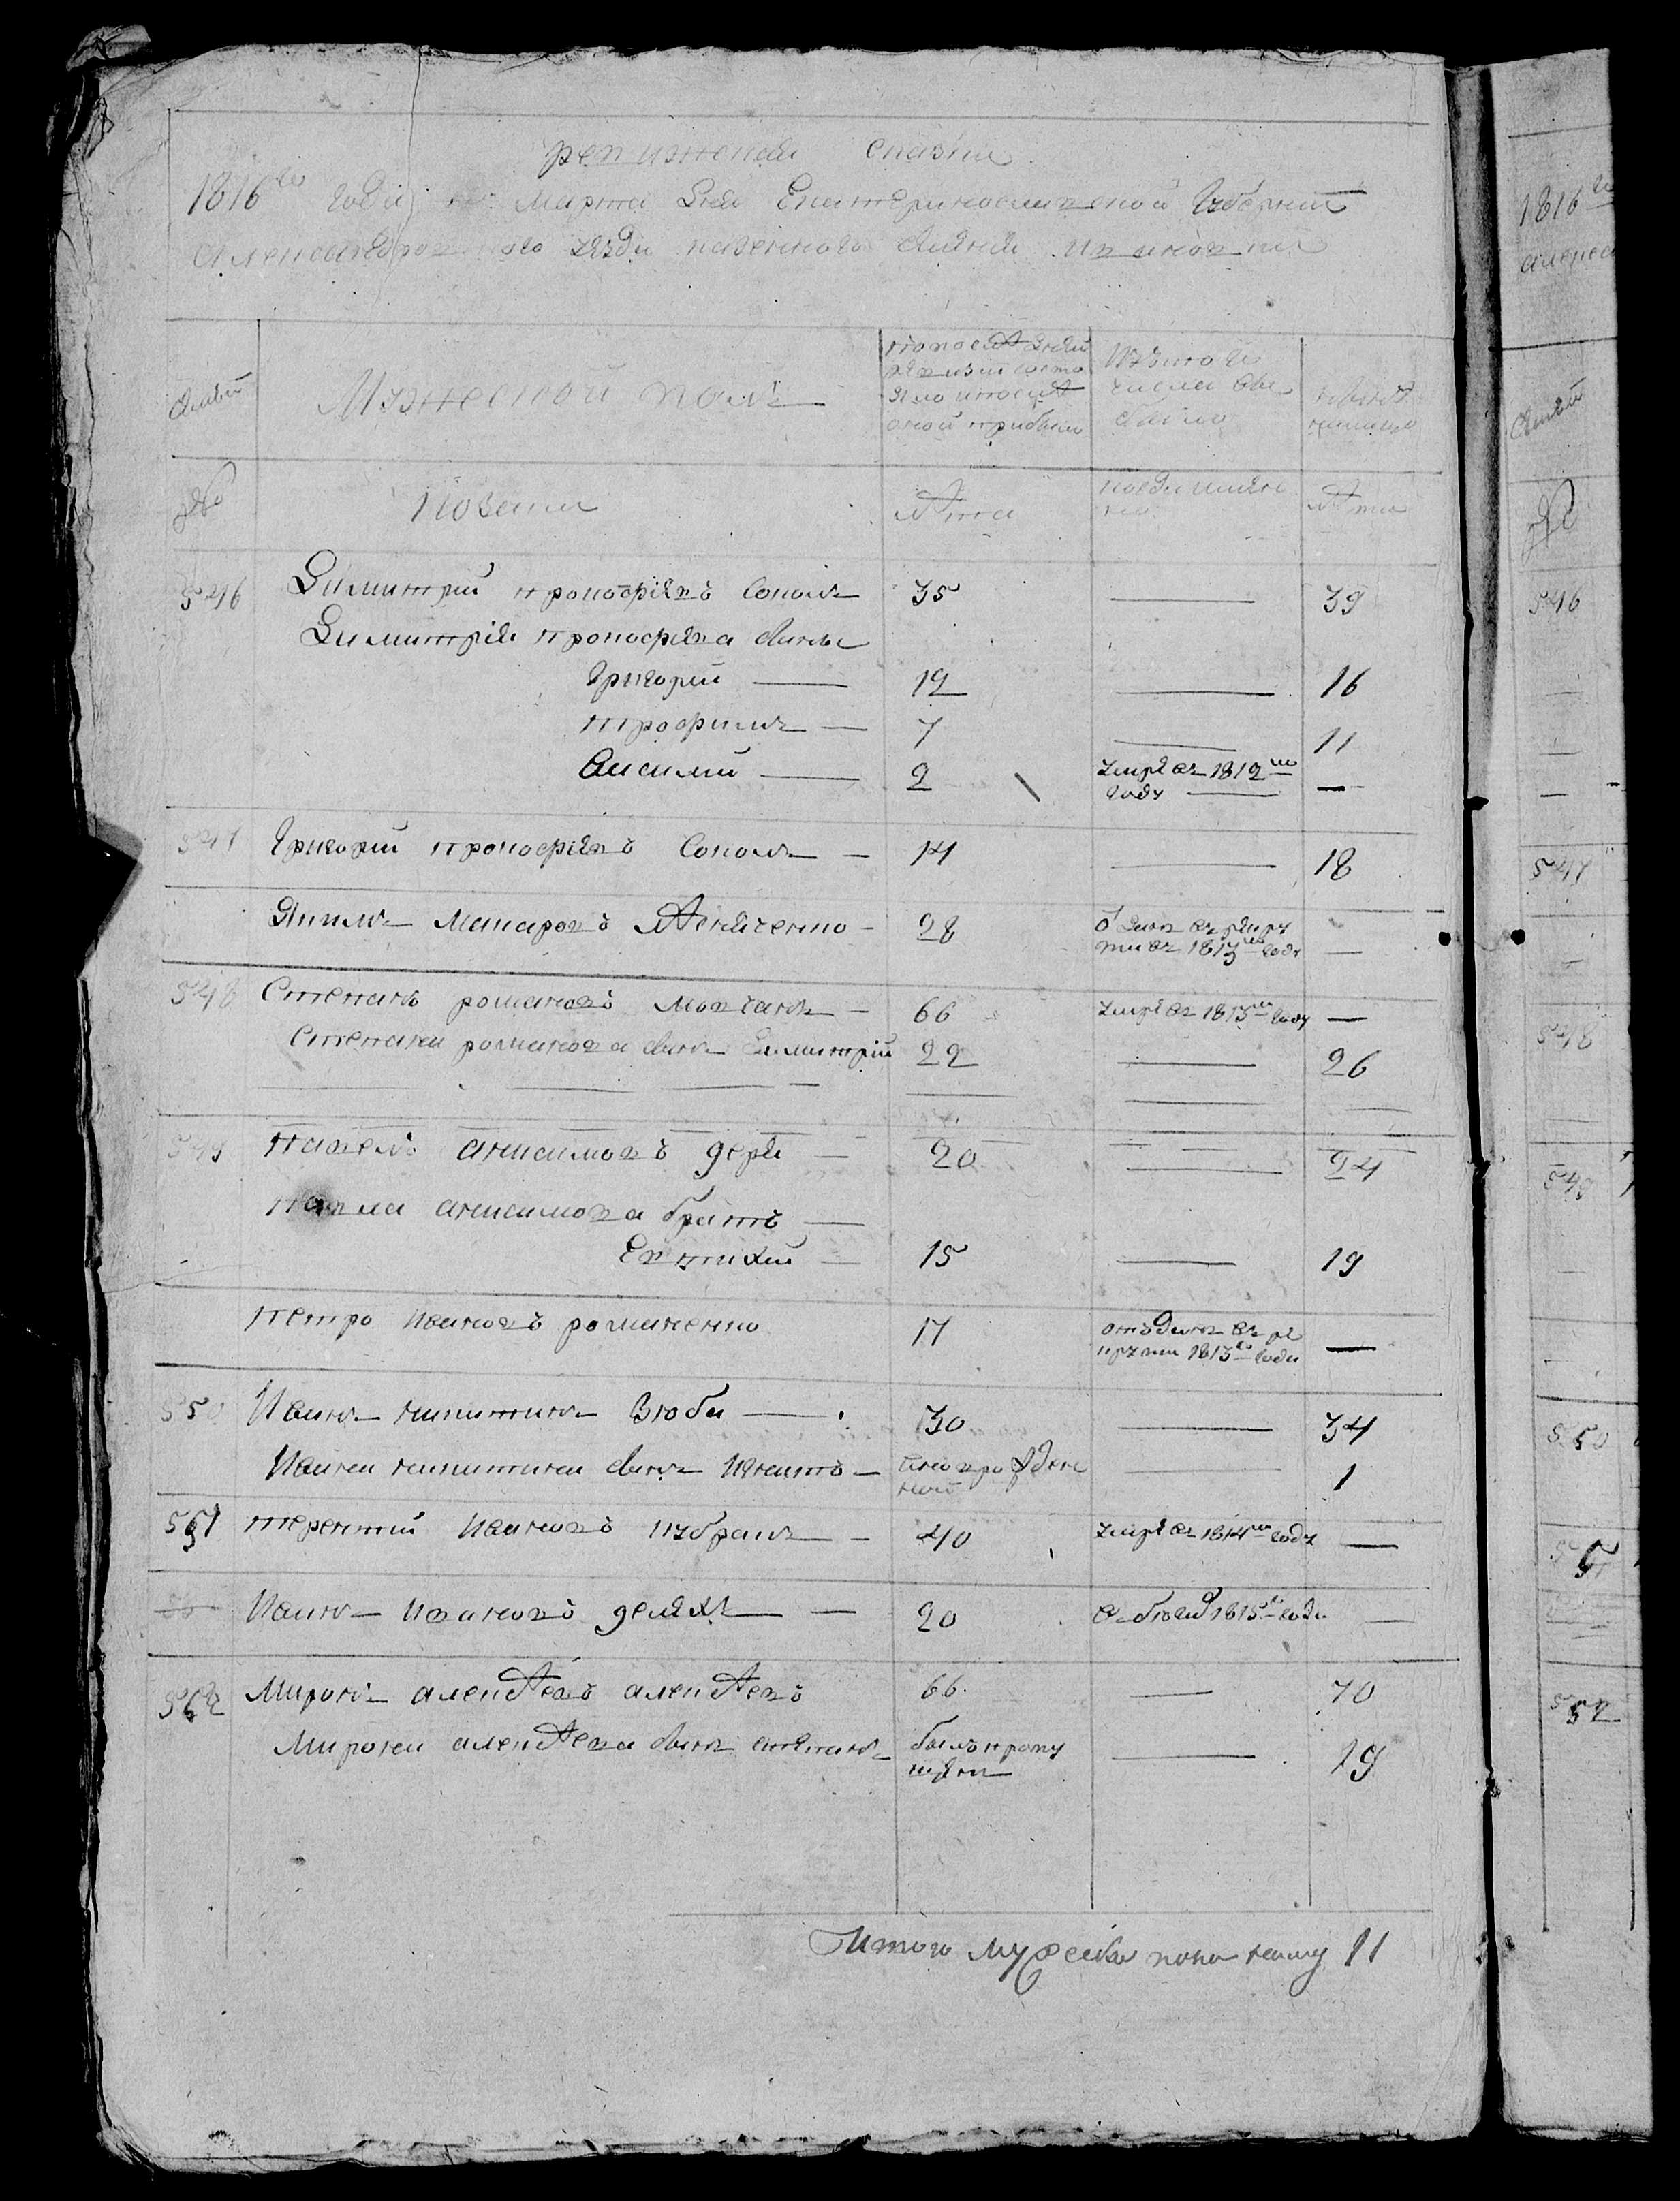 ревижская сказка
1816го года марта дня Екатеринославской губернии
Александровского уезда казенного селения Ивановки
Мужеской полъ
по последней
ревизии состо
яло и после
оной прибыло
Изъ того
числа выбыло
ныне на
лицо
Семьи
№
Козаки
Лета
когда именно
Лета
546 Димитрий прокофиевъ Соколъ 35 — 39
Димитрия прокофиева сыны
григорий — 12 — 16
трофимъ — 7 — 11
Анисимъ — 2 умре въ 1812мъ
году —
547 григорий прокофиевъ Соколъ — 14 — 18
Якимъ Макаровъ 28 отданъ въ рекру
ти въ 1813мъ году —
548 Степанъ романовъ Мовчанъ — 66 умре въ 1813мъ году —
Степана романова сынъ Димитрий 22 — 26
549 павелъ анисимовъ дера — 20 — 24
павла анисимова братъ —
Евтихий — 15 — 19
петро Ивановъ романенко 17 отъданъ въ ре
круты 1813го года —
550 Иванъ никитинъ Зюба — 30 — 34
Ивана никитина сынъ Игнатъ — новорожден
ной — 1
551 терентий Ивановъ 40 умре въ 1814мъ году —
Иванъ Ивановъ 20 въ бегахъ 1815го года —
552 Миронъ алексеевъ алексеевъ 66 — 70
Мирона алексеева сынъ степанъ былъ пропу
щенъ — 19
Итого мужеска пола на лицо 11
1816го
546
547
548
549
550
551
552